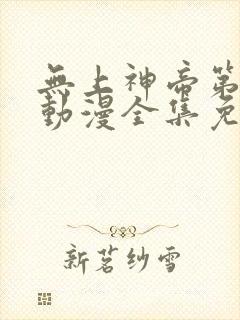 無上神帝第
動漫全集免
新茗紗雪